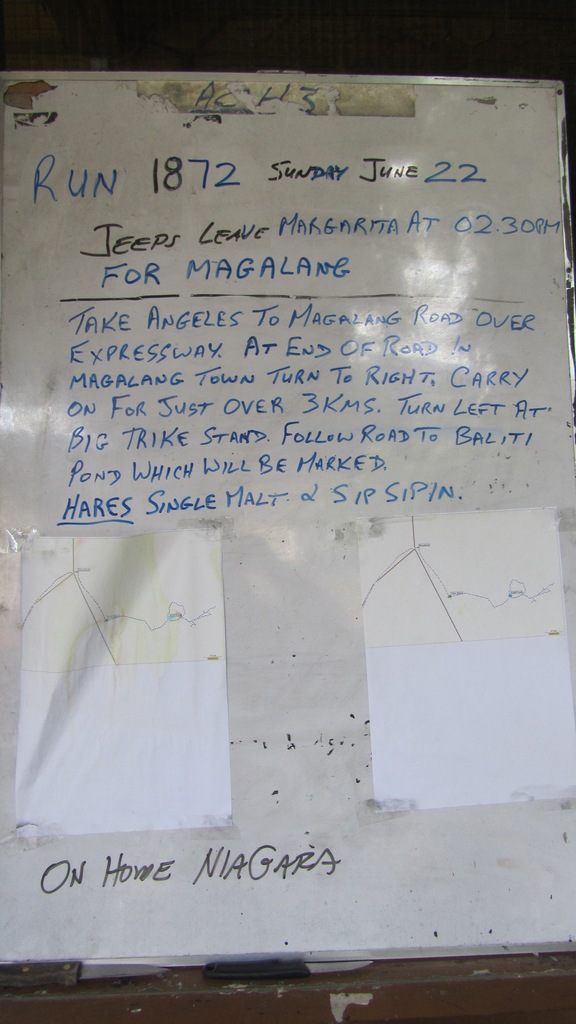 AC H3
RUN 1872 SUNDAY JUNE 22
JEEPS LEAVE MARGARITA AT 02.30PM
FOR MAGALANG
TAKE ANGELES TO MAGALANG ROAD OVER
EXPRESSWAY. AT END OF ROAD IN
MAGALANG TOWN TURN TO RIGHT. CARRY
ON FOR JUST OVER 3KMS. TURN LEFT AT
BIG TRIKE STAND. FOLLOW ROAD TO BALITI
POND WHICH WILL BE MARKED.
HARES SINGLE MALT & SIP SIPIN.
ON HOME NIAGARA